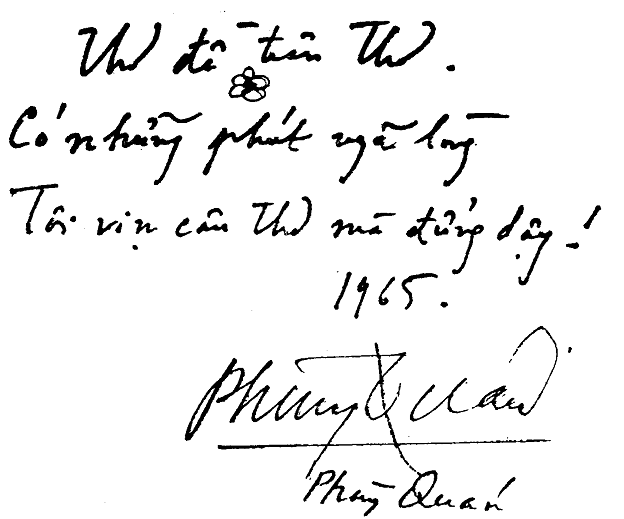 Thơ đề trên Thơ.
Có những phút ngã lòng
Tôi vịn câu thơ mà đứng dậy!
1965.
Phùng Quán
Phùng Quán